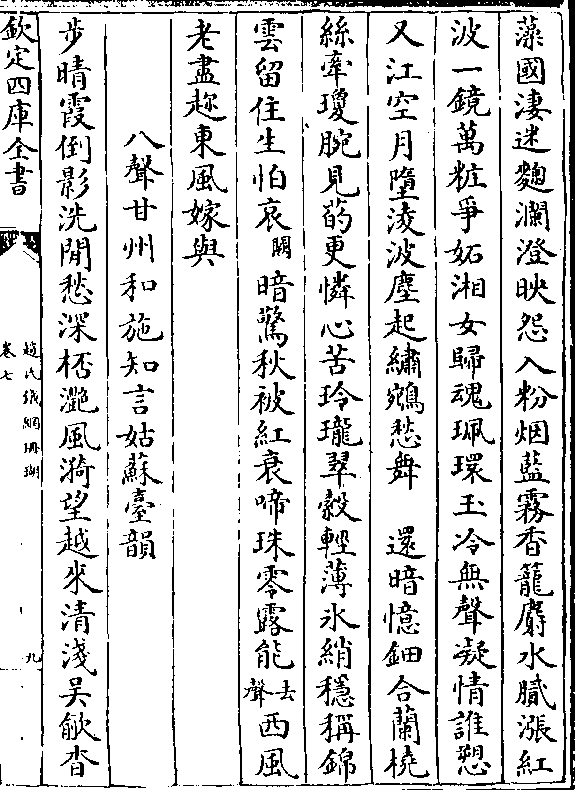 藻國淒迷麴瀾澄映怨入粉烟藍霧香籠麝水膩漲紅
波一鏡萬粧爭妬湘女歸魂珮環玉冷無聲凝情誰愬
又江空月墮淩波塵起繡鴛愁舞　還暗憶鈿合蘭橈
絲牽瓊腕見菂更憐心苦玲瓏翠縠輕薄氷綃穩稱錦
雲留住生怕哀闕暗驚秋被紅衰啼珠零露能去聲西風
老盡趂東風嫁與
八聲甘州和施知言姑蘇臺韻
步晴霞倒影洗閒愁深桮灔風漪望越來清淺吳歈杳
欽定四庫全書
趙氏鐵網珊瑚
卷七
九